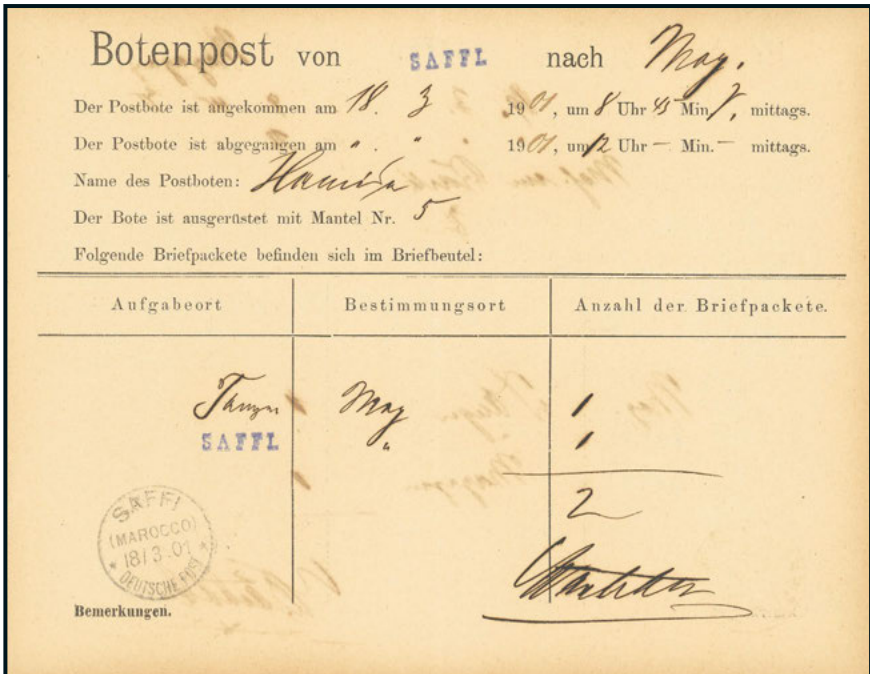 Botenpost von SAFFL nach Mog.
Der Postbote ist angekommen am 18. 3 1901, um 8 Uhr 45 Min. V. mittags.
Der Postbote ist abgegangen am " . " 1901, um 12 Uhr — Min. — mittags.
Name des Postboten:
Der Bote ist ausgerüstet mit Mantel Nr. 5
Folgende Briefpackete befinden sich im Briefbeutel:
Aufgabeort Bestimmungsort Anzahl der Briefpackete.
Tanger Mog 1
SAFFL " 1
2
SAFFI
(MAROCCO)
18/3.01
* DEUTSCHE POST *
Bemerkungen.